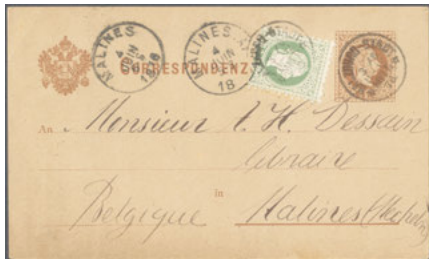 MALINES 4 JUIN 1878
MALINES 4 JUIN 18
CORRESPONDENZ
An Monsieur H. Dessain
Libraire
in
Belgique Malines (Mecheln)